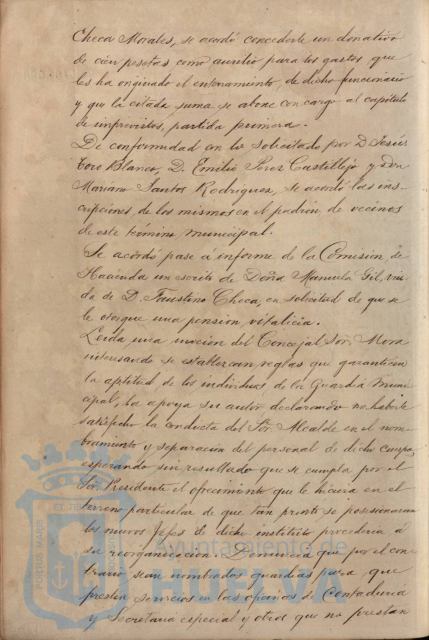 Checa Morales, se acordó concederle un donativo
de cien pesetas como auxilio para los gastos que
les ha originado el enterramiento, de dicho funcionario
y que la citada suma se abone con cargo al capítulo
de imprevistos, partida primera.
De conformidad con lo solicitado por D. Jesús
Toro Blanco, D. Emilio Perez Castillejo y Don
Mariano Santos Rodrigues, se acordó las ins-
cripciones de los mismos en el padrón de vecinos
de este término municipal.
Se acordó pase á informe de la Comisión de
Hacienda un escrito de Doña Manuela Gil, viu-
da de D. Faustino Checa, en solicitud de que se
le otorgue una pensión vitalicia.
Leida una moción del Concejal Sor. Mora
interesando se establezcan reglas que garanticen
la aptitud de los individuos de la Guardia Muni-
cipal, la apoya su autor, declarando no haberle
satisfecho la conducta del Sor. Alcalde en el nom-
bramiento y separación del personal de dicho cuerpo,
esperando sin resultado que se cumpla por el
Sor. Presidente el ofrecimiento que le hiciera en el
terreno particular de que tan pronto se posesionaran
los nuevos Jefes de dicho instituto procedería á
su reorganización. Denuncia que por el con-
trario sean nombrados guardias para que
presten servicios en las oficinas de Contaduria
y Secretaria especial y otros que no prestan
Ayuntamiento de
HUELVA
PORTUS MARIS